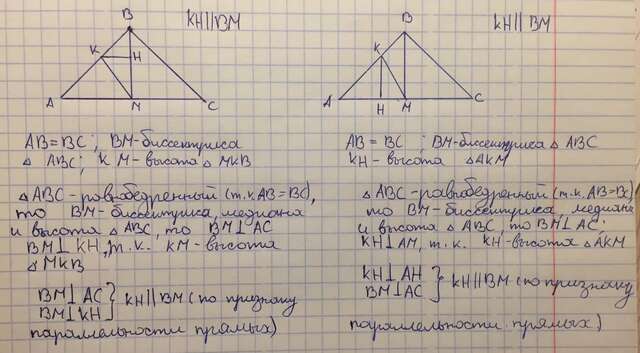 KH||BM
B
K
H
A
M
C
AB=BC; BM-биссектриса
△ ABC; KM-высота △ MKB
△ABC-равнобедренный (т.к. AB=BC),
то BM-биссектриса, медиана
и высота △ABC, то BM⊥AC
BM⊥KH, т.к. KM-высота
△MKB
BM⊥AC
BM⊥KH } KH||BM (по признаку
параллельности прямых)
KH||BM
B
K
A
H
M
C
AB=BC; BM-биссектриса △ABC
KH-высота △AKM
△ABC-равнобедренный (т.к. AB=BC)
то BM-биссектриса, медиана
и высота △ABC, то BM⊥AC;
KH⊥AM, т.к. KH-высота △AKM
KH⊥AH
BM⊥AC } KH||BM (по признаку
параллельности прямых)